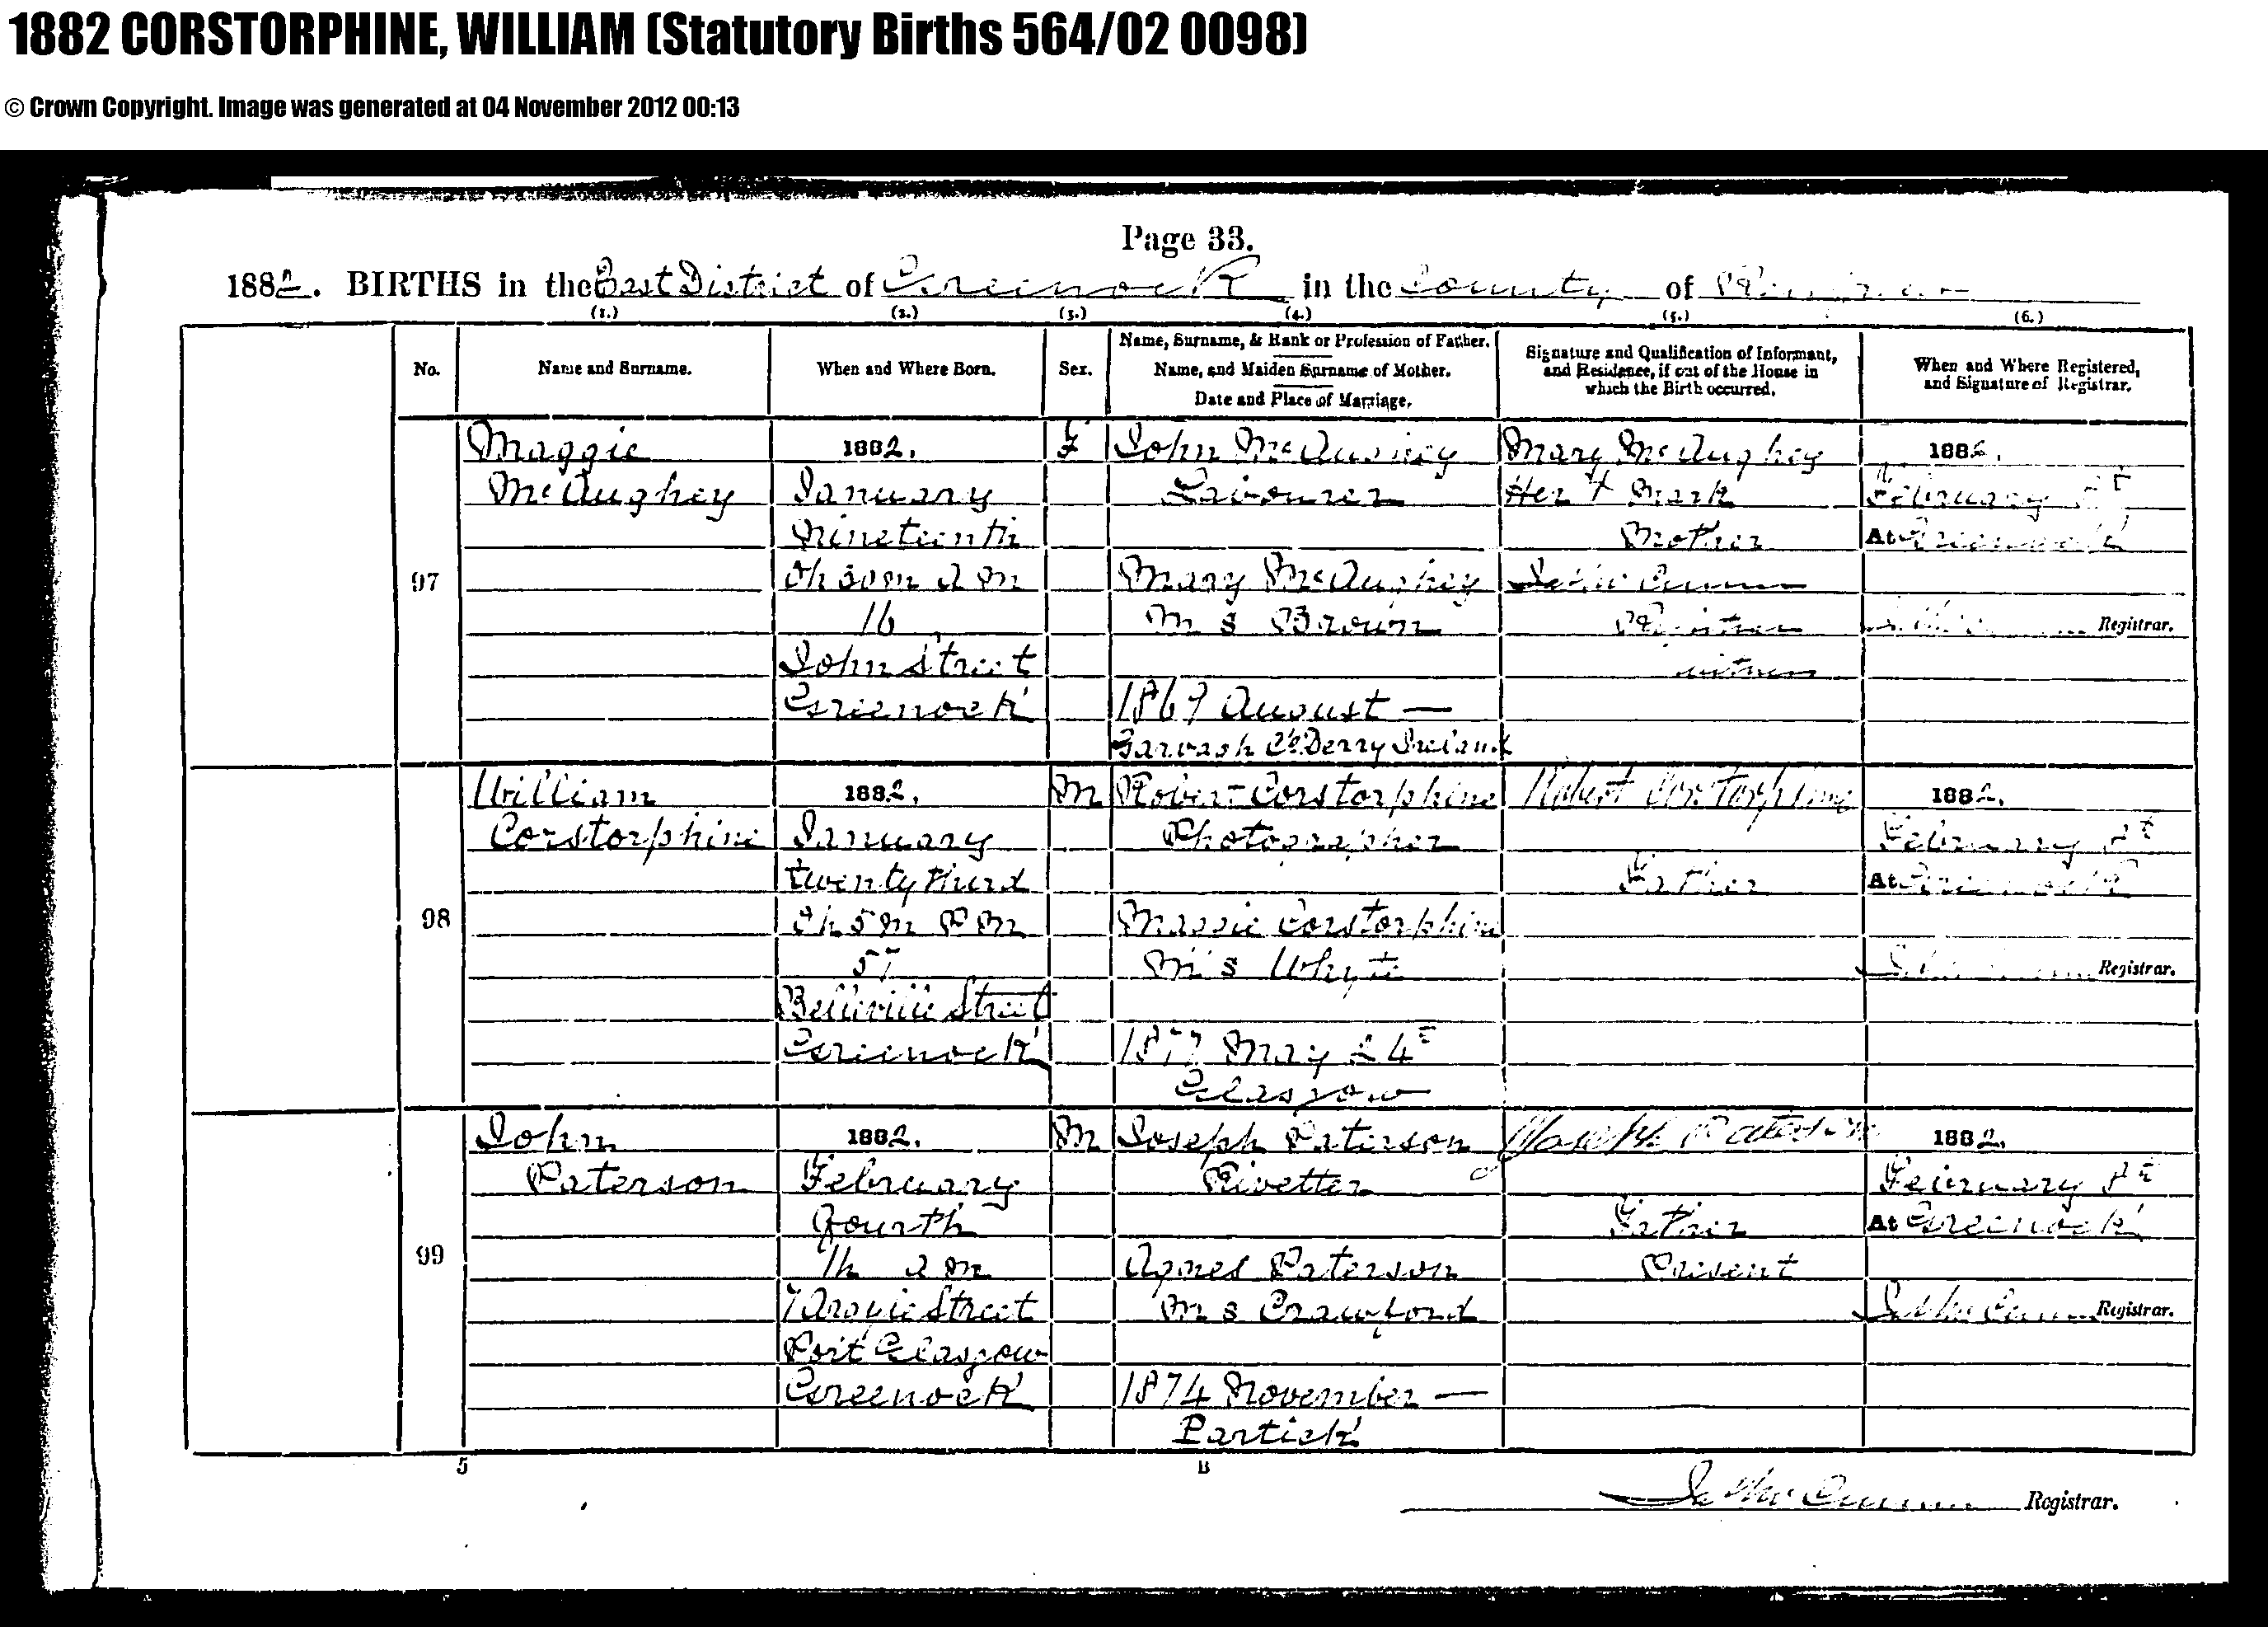 1882 CORSTORPHINE, WILLIAM (Statutory Births 564/02 0098)
© Crown Copyright. Image was generated at 04 November 2012 00:13
Page 33.
1882. BIRTHS in the East District of Greenock in the County of
(1.) (2.) (3.) (4.) (5.) (6.)
No. Name and Surname. When and Where Born. Sex. Name, Surname, & Rank or Profession of Father. Name, and Maiden Surname of Mother. Date and Place of Marriage. Signature and Qualification of Informant, and Residence, if out of the House in which the Birth occurred. When and Where Registered, and Signature of Registrar.
97
Maggie
McAughey
1882.
January
nineteenth
16
John Street
Greenock
F
John McAughey
Labourer
Mary McAughey
M s Brown
1869 August —
Garvagh Co Derry Ireland
Mary McAughey
Her X Mark
Mother
Registrar
witness
1882.
February
At Greenock
Registrar.
98
William
Corstorphine
1882.
January
twenty third
57
Belleville Street
Greenock
M
Robert Corstorphine
Photographer
Corstorphine
M s Whyte
1877 May 24th
Glasgow
Robert Corstorphine
Father
1882.
February
At Greenock
Registrar.
99
John
Paterson
1882.
February
fourth
1h a m
7 Argyle Street
Port Glasgow
Greenock
M
Joseph Paterson
Rivetter
Agnes Paterson
M s Crawford
1874 November —
Partick
Joseph Paterson
Father
Present
1882.
February
At Greenock
Registrar.
5 B
Registrar.